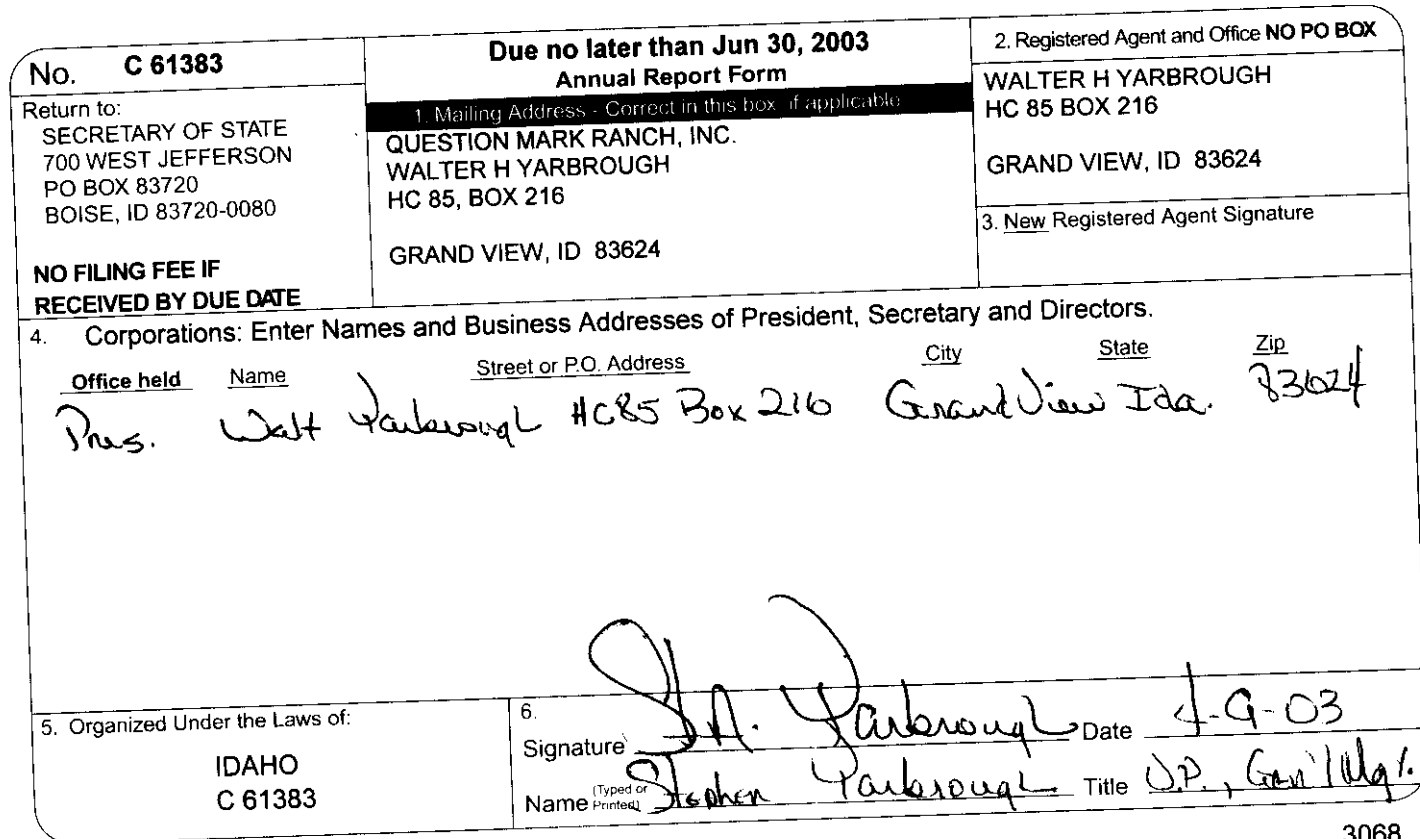 No. C 61383
Return to:
SECRETARY OF STATE
700 WEST JEFFERSON
PO BOX 83720
BOISE, ID 83720-0080
NO FILING FEE IF
RECEIVED BY DUE DATE
Due no later than Jun 30, 2003
Annual Report Form
1. Mailing Address - Correct in this box if applicable
QUESTION MARK RANCH, INC.
WALTER H YARBROUGH
HC 85, BOX 216
GRAND VIEW, ID 83624
2. Registered Agent and Office NO PO BOX
WALTER H YARBROUGH
HC 85 BOX 216
GRAND VIEW, ID 83624
3. New Registered Agent Signature
4. Corporations: Enter Names and Business Addresses of President, Secretary and Directors.
Office held Name Street or P.O. Address City State Zip
Pres. Walt Yarbrough HC85 Box 216 Grand View Ida. 83624
5. Organized Under the Laws of:
IDAHO
C 61383
6.
Signature Yarbrough Date 4-9-03
Name (Typed or Printed) Stephen Yarbrough Title V.P., Gen'l Mgr.
3068